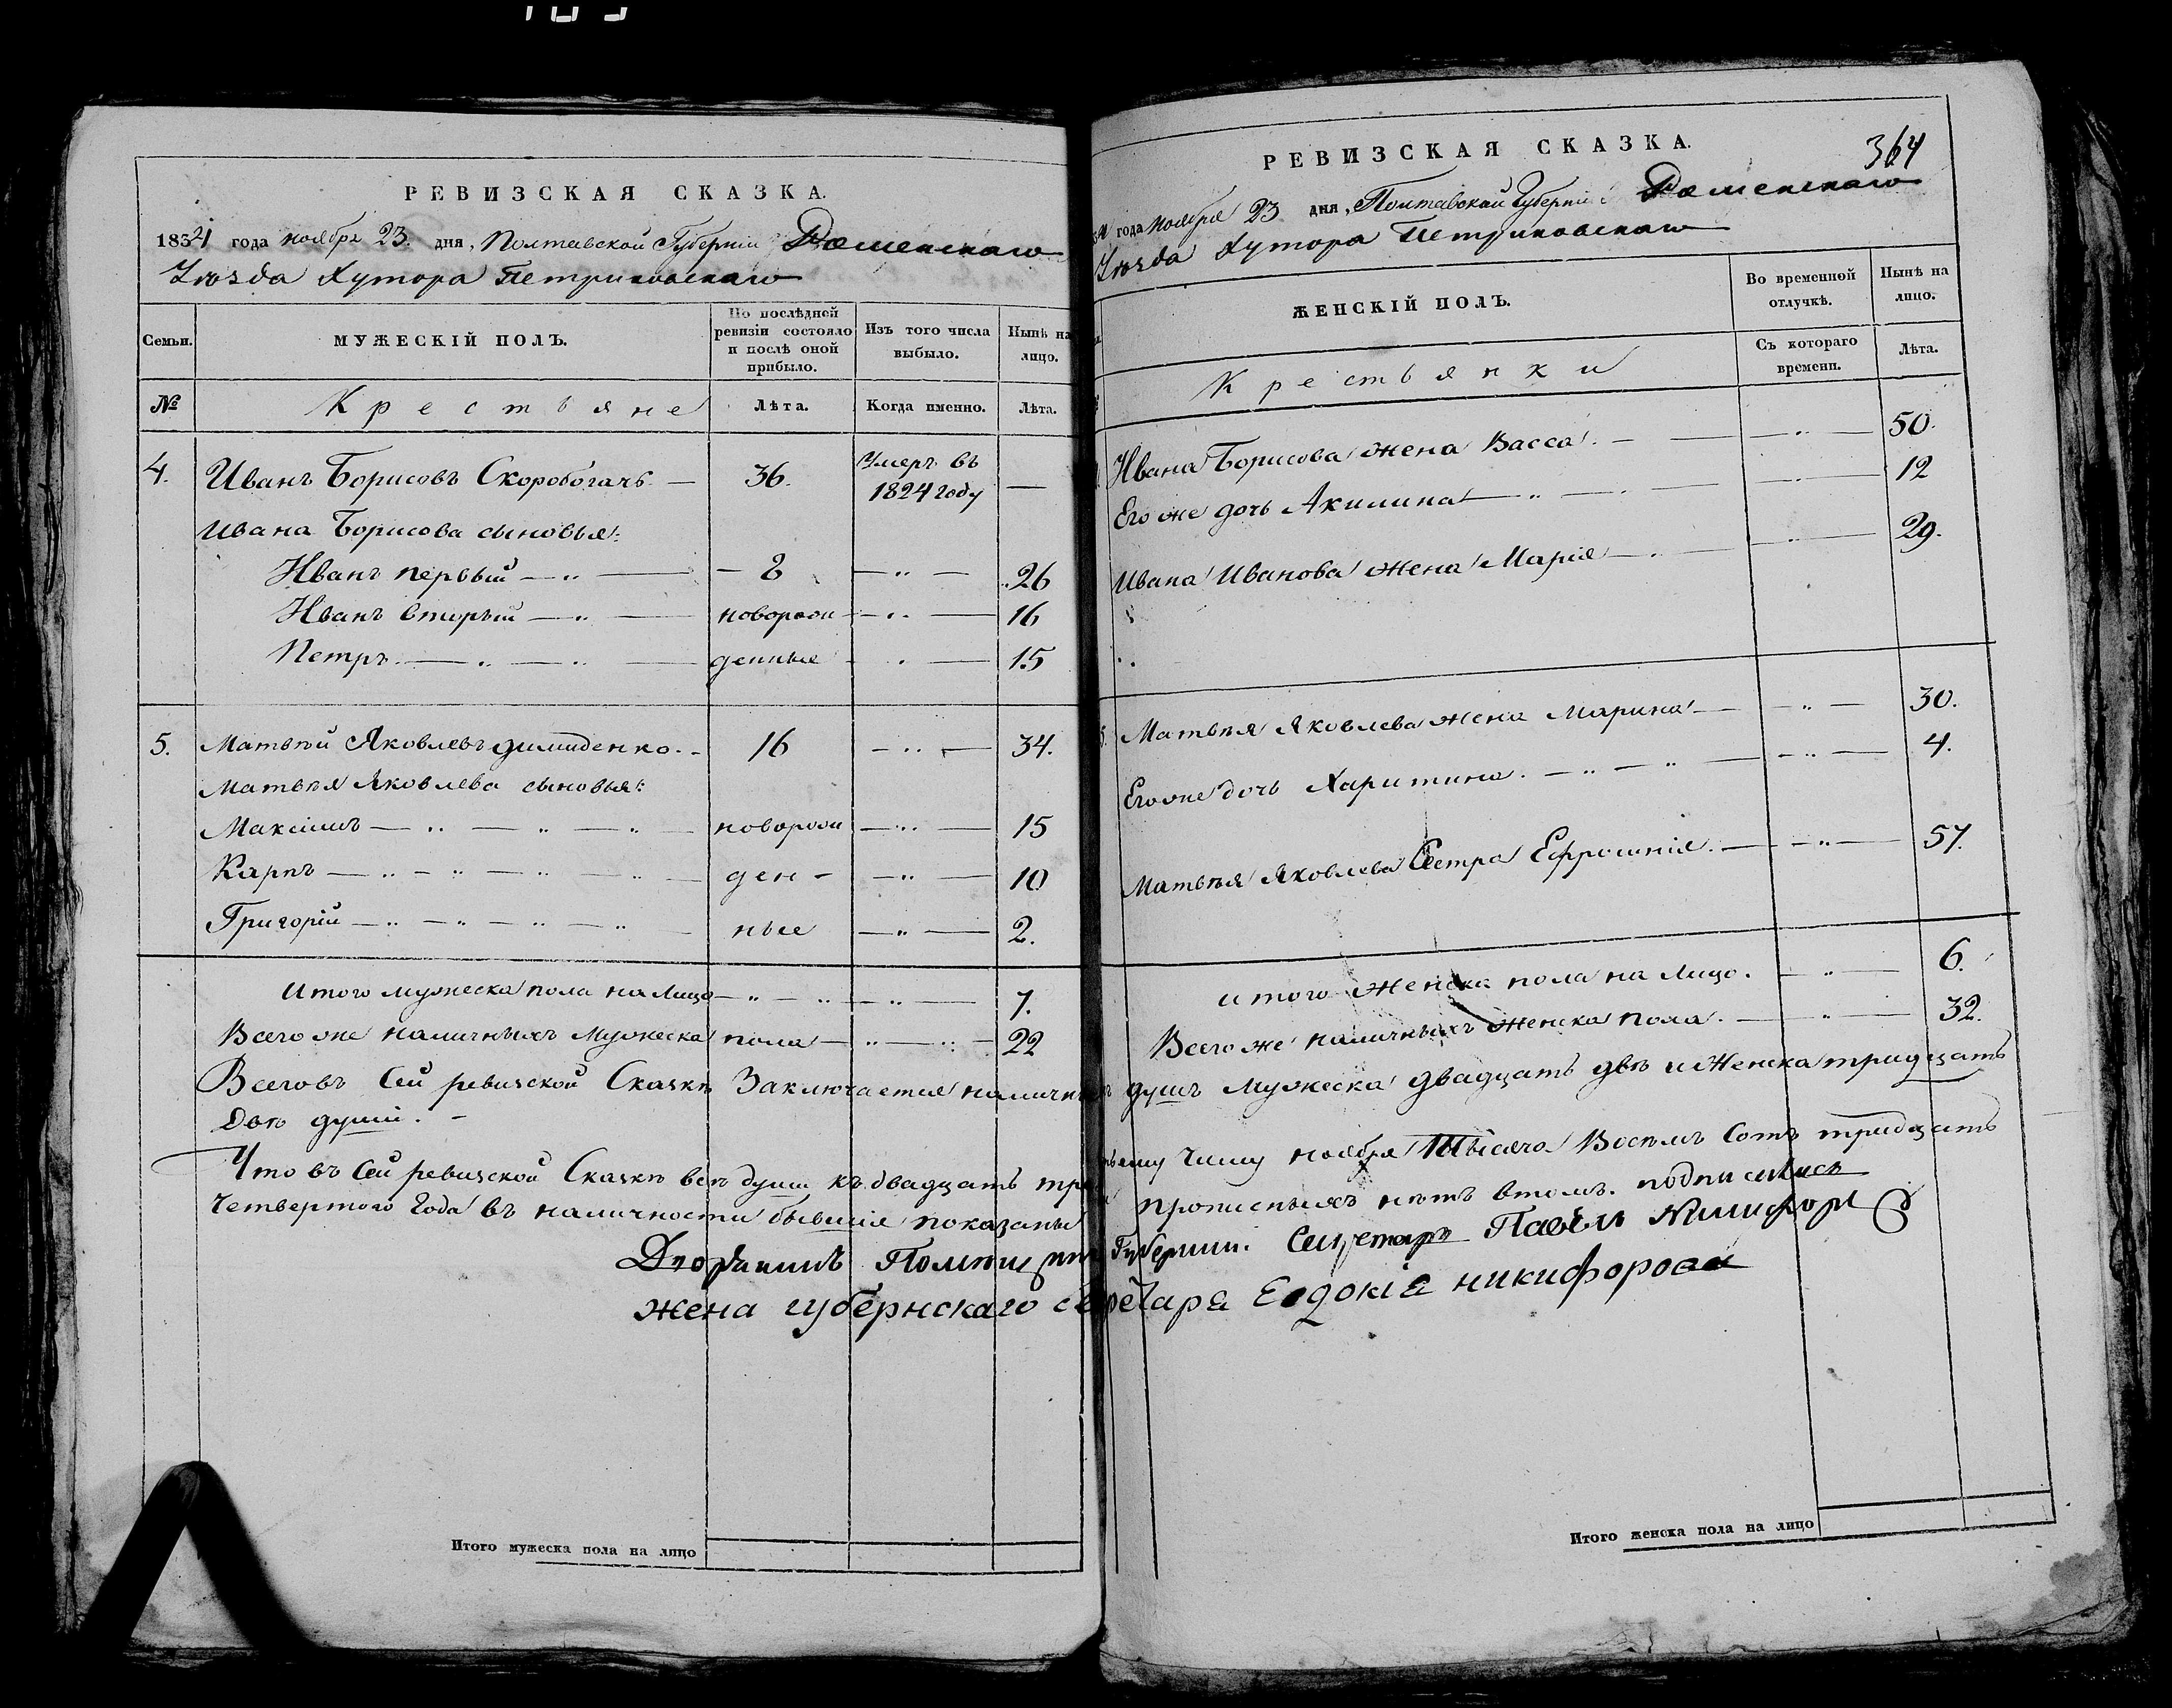 РЕВИЗСКАЯ СКАЗКА.
1834 года ноября 23. дня, Полтавской Губерніи Роменскаго
Уѣзда Хутора Петриковскаго
Семьи.
МУЖЕСКІЙ ПОЛЪ.
По послѣдней ревизіи состояло и послѣ оной прибыло.
Изъ того числа выбыло.
Нынѣ на лицо.
№
Крестьяне
Лѣта.
Когда именно.
Лѣта.
4. Иванъ Борисовъ Скоробогачъ — 36. Умеръ въ 1824 году —
Ивана Борисова сыновья:
Иванъ первый — 8 — 26
Иванъ вторый — новорож — 16
Петръ — денные — 15
5. Матвѣй Яковлевъ Димиденко. 16 — 34.
Матвѣя Яковлева сыновья:
Максимъ — новорож — 15
Карпъ — ден — 10
Григорій — ные — 2.
Итого мужеска пола на лицо — 7.
Всего же наличныхъ мужеска пола — 22
Итого мужеска пола на лицо
РЕВИЗСКАЯ СКАЗКА.
364
года ноября 23 дня, Полтавской Губерніи Роменскаго
Уѣзда Хутора Петриковскаго
ЖЕНСКІЙ ПОЛЪ.
Во временной отлучкѣ.
Нынѣ на лицо.
Крестьянки
Съ котораго времени.
Лѣта.
Ивана Борисова жена Васса — 50.
Его же дочь Акилина — 12
Ивана Иванова жена Марія — 29.
Матвѣя Яковлева жена Марина — 30.
Его же дочь Харитина. — 4.
Матвѣя Яковлева Сестра Ефросинія. — 57.
Итого женска пола на лицо. — 6.
Всего же наличныхъ женска пола. — 32.
Всего въ сей ревизской Сказкѣ Заключается наличныхъ душъ Мужеска двадцать двѣ и Женска тридцать
двѣ души. -
Что въ Сей ревизской Сказкѣ всѣ души къ двадцать третьему Числу ноября Тысяча Восемь Сотъ тридцать
Четвертого Года въ наличности бывшіе показаны и прописныхъ нѣтъ втомъ. подписались
Губерніи. Секретарь Павелъ
жена губернского секретара Евдокіа никифорова
Итого женска пола на лицо